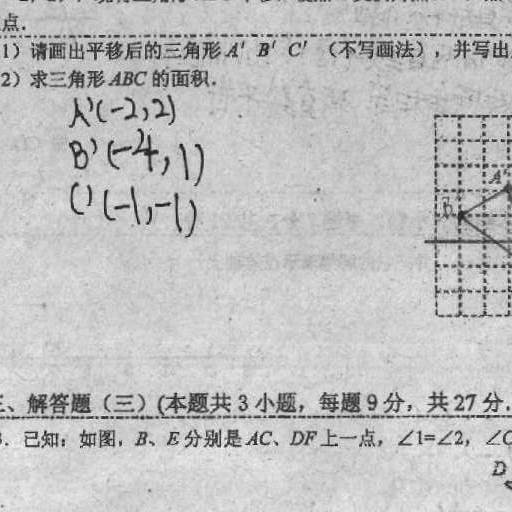 点.
1）请画出平移后的三角形 A′ B′ C′ （不写画法），并写出
2）求三角形 ABC 的面积.
A'(-2,2)
B'(-4,1)
C'(-1,-1)
A'
B'
三、解答题（三）(本题共 3 小题，每题 9 分，共 27 分.
. 已知：如图，B、E 分别是 AC、DF 上一点，∠1=∠2，∠C
D